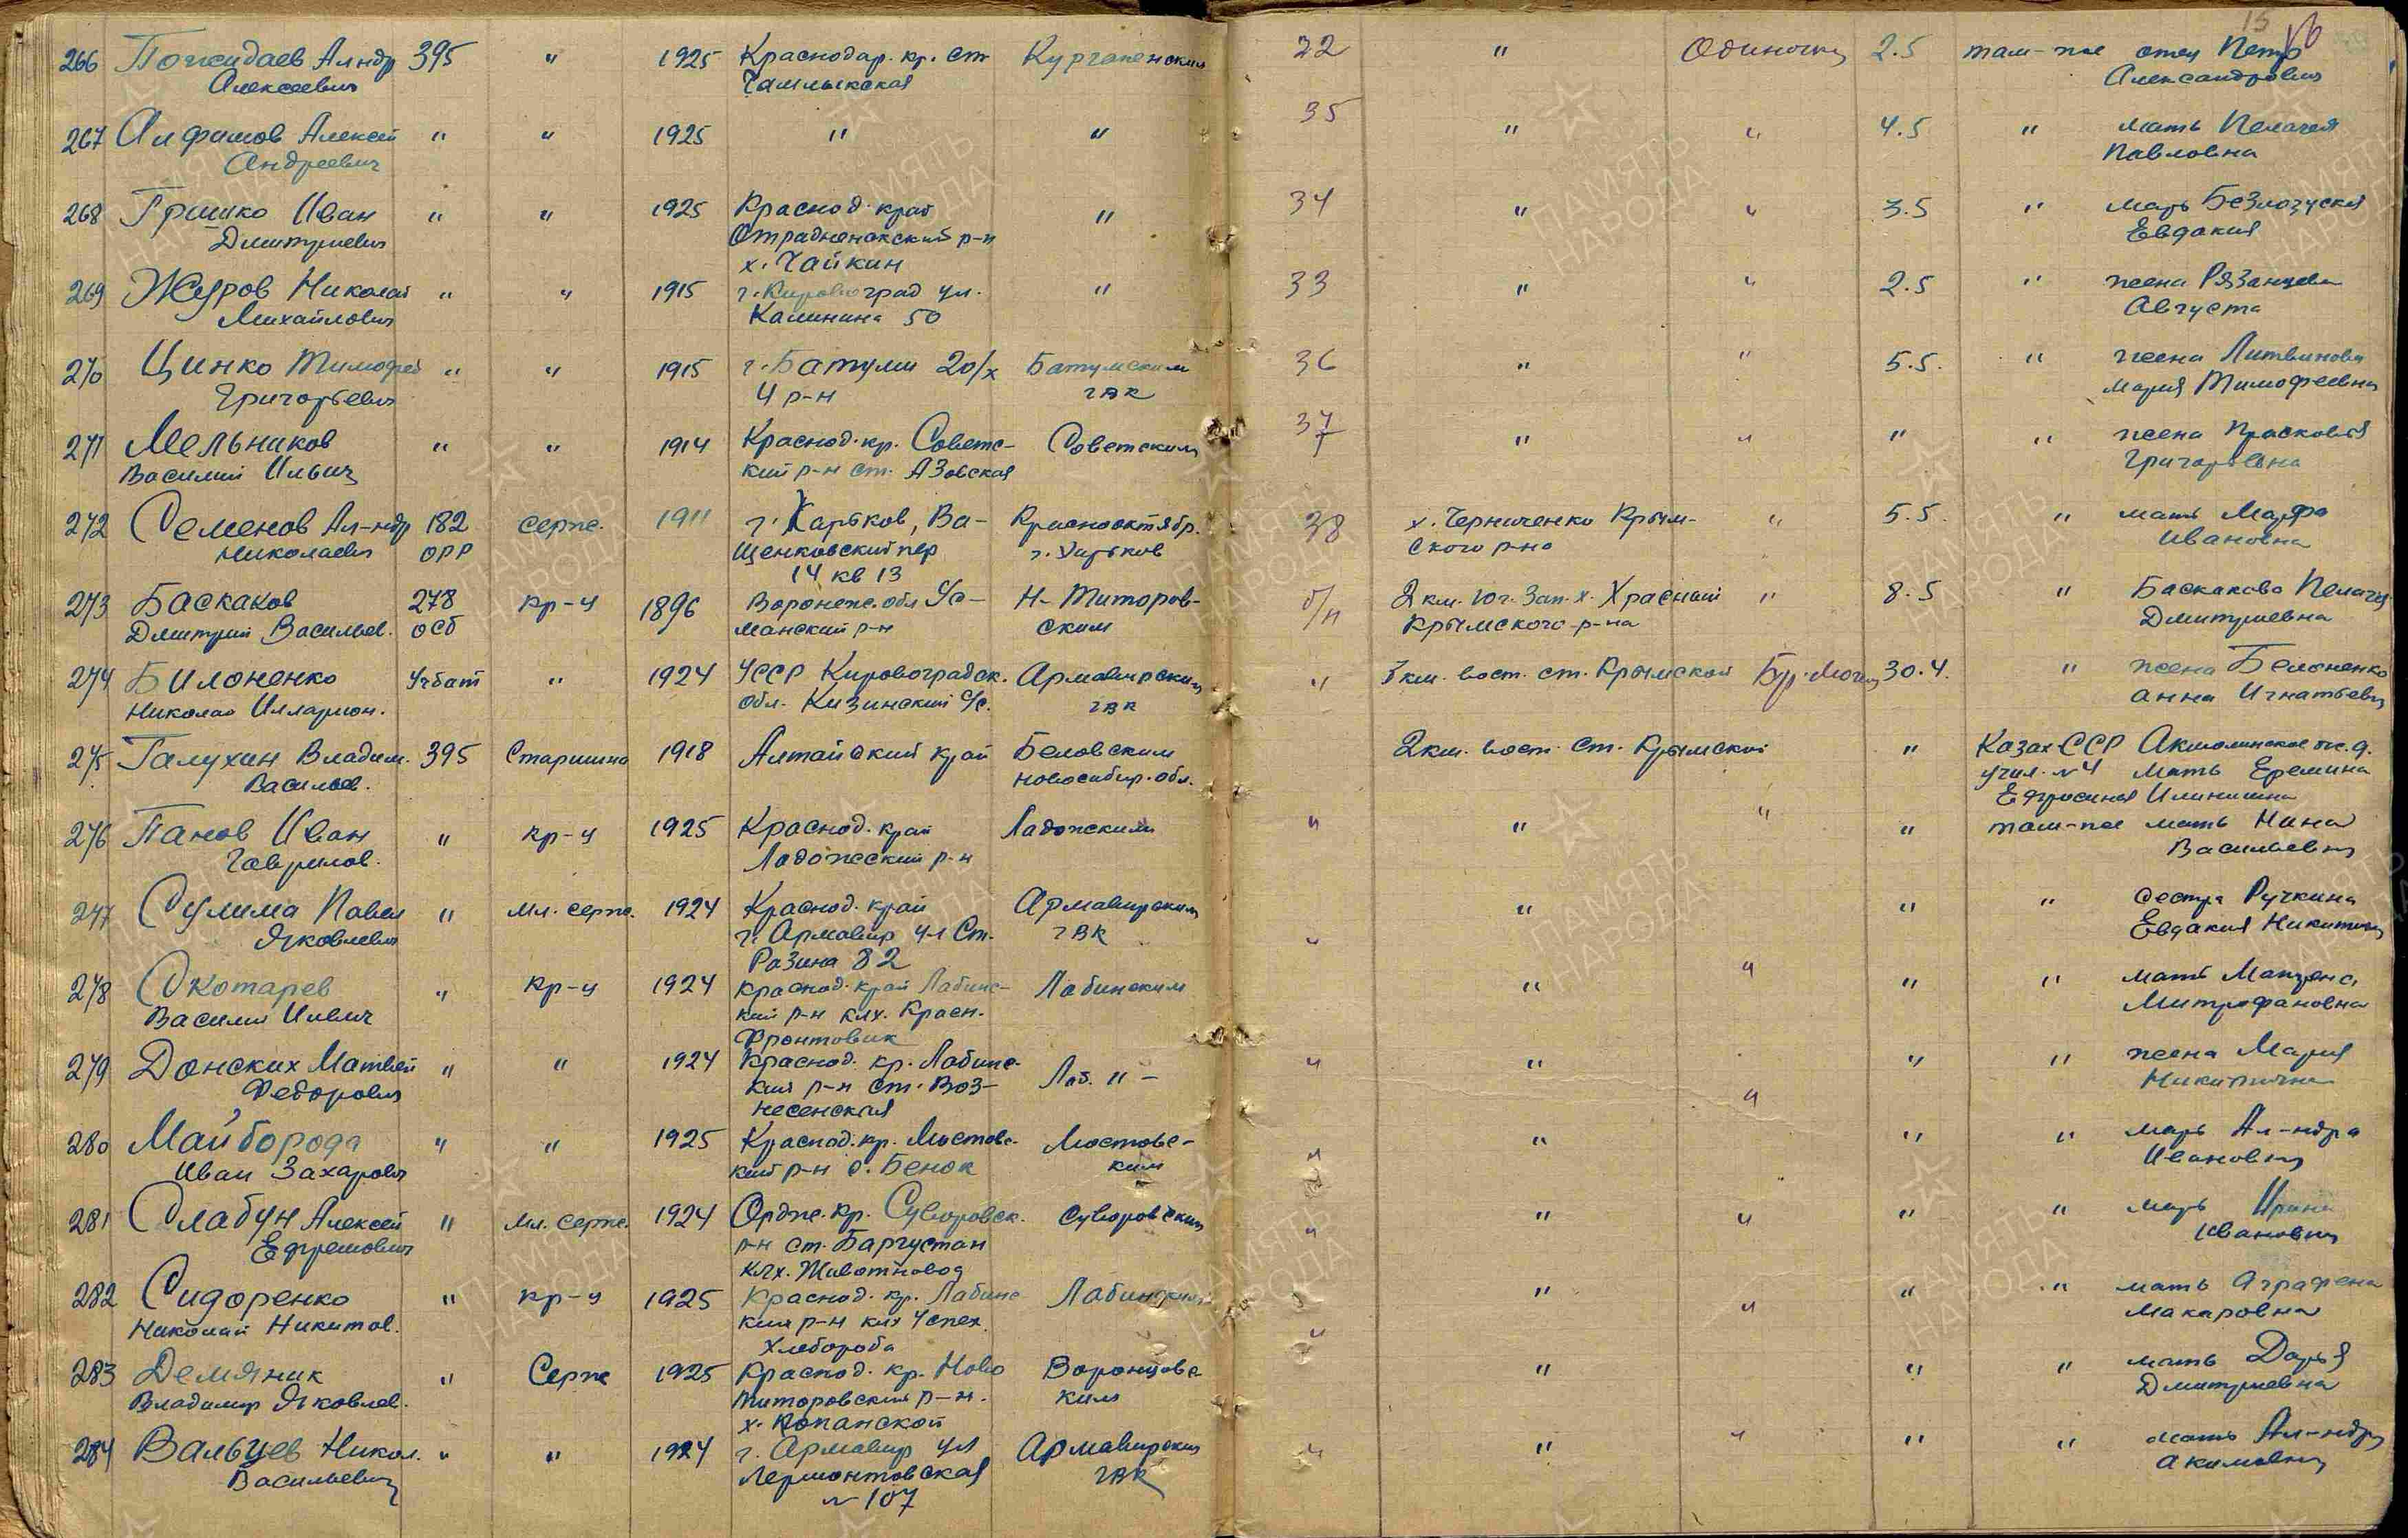 15
266 Пожидаев Ал-ндр 395 " 1925 Краснодар. кр. ст. Курганенским 32 " Одиночн 2.5 там-же отец Петр
Алексеевич Чамлыкская Александрович
267 Алфимов Алексей " " 1925 " " 35 " " 4.5 " мать Пелагея
Андреевич Павловна
268 Гришко Иван " " 1925 Краснод. край " 34 " " 3.5 " мать Безлюдская
Дмитриевич Отрадненский р-н Евдокия
х. Чайкин
269 Журов Николай " " 1915 г. Кировоград ул. " 33 " " 2.5 " жена Рязанцева
Михайлович Калинина 50 Августа
270 Цинко Тимофей " " 1915 г. Батуми 20/х Батумским 36 " " 5.5. " жена Литвинова
Григорьевич 4 р-н ГВК Мария Тимофеевна
271 Мельников " " 1914 Краснод. кр. Советс- Советским 37 " " " " жена Прасковья
Василий Ильич кий р-н ст. Азовская Григорьевна
272 Семенов Ал-ндр 182 серж. 1911 г. Харьков, Ва- Краснооктябр. 38 х. Черниченко Крым- " 5.5. " мать Марфа
Николаевич ОРР щенковский пер г. Харьков ского р-на Ивановна
14 кв 13
273 Баскаков 278 кр-ц 1896 Воронеж. обл Ус- Н-Титоров- б/н 2 км. юг. зап. х. Красный " 8.5 " Баскакова Пелагея
Дмитрий Васильев. осб манский р-н ским Крымского р-на Дмитриевна
274 Билоненко Учбат " 1924 УССР Кировоградск. Армавирским " 3 км. вост. ст. Крымской Бр. Моги 30.4. " жена Белоненко
Николай Илларион. обл. Кизинский с/с. ГВК Анна Игнатьевн
275 Галухин Владим. 395 Старшина 1918 Алтайский край Беловским 2 км. вост. ст. Крымской " Казах ССР Акмолинское ж.д.
Васильев. Новосибир. обл. учил. №4 мать Еремина
Ефросиния Илинишна
276 Панов Иван " кр-ц 1925 Краснод. край Ладожским " " " " там-же мать Нина
Гаврилов. Ладожский р-н Васильевн
277 Сулима Павел " мл. серж. 1924 Краснод. край Армавирским " " " " сестра Ручкина
Яковлевич г. Армавир ул Ст. ГВК Евдокия Никитичн
Разина 82
278 Скотарев " кр-ц 1924 Краснод. край Лабинс- Лабинским " " " " мать Матрена
Василий Ильич кий р-н клх. Красн. Митрофановна
Фронтовик
279 Донских Матвей " " 1924 Краснод. кр. Лабинс- Лаб. " - " " " " " жена Мария
Федорович кий р-н ст. Воз- Никитична
несенская
280 Майборода " " 1925 Краснод. кр. Мостовс- Мостовс- " " " " мать Ал-ндра
Иван Захарович кий р-н с. Бенок ким Ивановн
281 Слабун Алексей " мл. серж. 1924 Ордж. кр. Суворовск. Суворовским " " " " " мать Ирина
Ефремович р-н ст. Баргустан Ивановн
клх. Животновод
282 Сидоренко " кр-ц 1925 Краснод. кр. Лабинс Лабинским " " " " " мать Аграфена
Николай Никитов. кий р-н клх Успех Макаровна
Хлебороба
283 Демяник " Серж 1925 Краснод. кр. Ново Воронцовс " " " " мать Дарья
Владимир Яковлев. титоровский р-н. ким Дмитриевна
х. Копанской
284 Вальцев Никол. " " 1924 г. Армавир ул Армавирским " " " " " мать Ал-ндра
Васильевич Лермонтовская ГВК Акимовн
№ 107